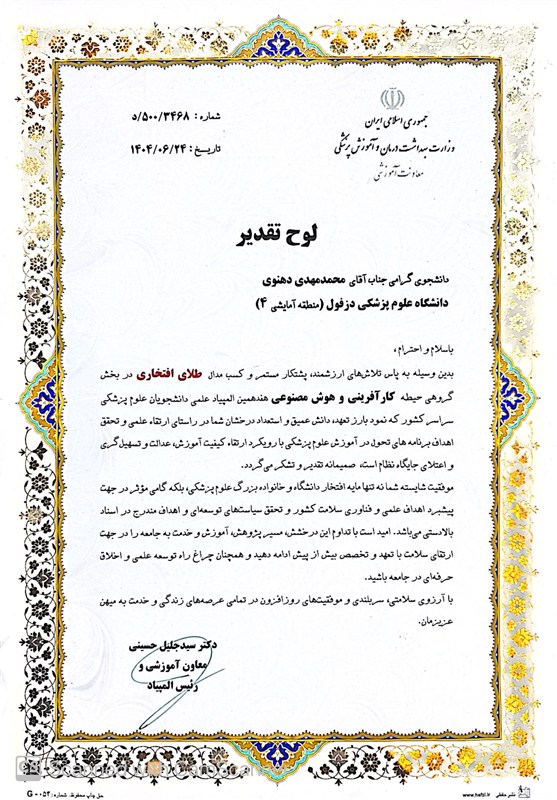 جمهوری اسلامی ایران
وزارت بهداشت درمان و آموزش پزشکی
معاونت آموزشی
شماره : ۵۰۰/۳۴۶۸/د
تاریخ : ۱۴۰۴/۰۶/۲۴
لوح تقدیر
دانشجوی گرامی جناب آقای محمدمهدی دهنوی
دانشگاه علوم پزشکی دزفول (منطقه آمایشی ۴)
باسلام و احترام ،
بدین وسیله به پاس تلاش‌های ارزشمند، پشتکار مستمر و کسب مدال طلای افتخاری در بخش
گروهی حیطه کارآفرینی و هوش مصنوعی هفدهمین المپیاد علمی دانشجویان علوم پزشکی
سراسر کشور که نمود بارز تعهد، دانش عمیق و استعداد درخشان شما در راستای ارتقاء علمی و تحقق
اهداف برنامه های تحول در آموزش علوم پزشکی با رویکرد ارتقاء کیفیت آموزش، عدالت و تسهیل‌گری
و اعتلای جایگاه نظام است، صمیمانه تقدیر و تشکر می‌گردد.
موفقیت شایسته شما نه تنها مایه افتخار دانشگاه و خانواده بزرگ علوم پزشکی، بلکه گامی مؤثر در جهت
پیشبرد اهداف علمی و فناوری سلامت کشور و تحقق سیاست‌های توسعه‌ای و اهداف مندرج در اسناد
بالادستی می‌باشد. امید است با تداوم این درخشش، مسیر پژوهش، آموزش و خدمت به جامعه را در جهت
ارتقای سلامت با تعهد و تخصص بیش از پیش ادامه دهید و همچنان چراغ راه توسعه علمی و اخلاق
حرفه‌ای در جامعه باشید.
با آرزوی سلامتی، سربلندی و موفقیت‌های روزافزون در تمامی عرصه‌های زندگی و خدمت به میهن
عزیزمان.
دکتر سیدجلیل حسینی
معاون آموزشی و
رئیس المپیاد
نشر حفظی www.hefzi.ir
حق چاپ محفوظ. شماره: G-۰۵۲